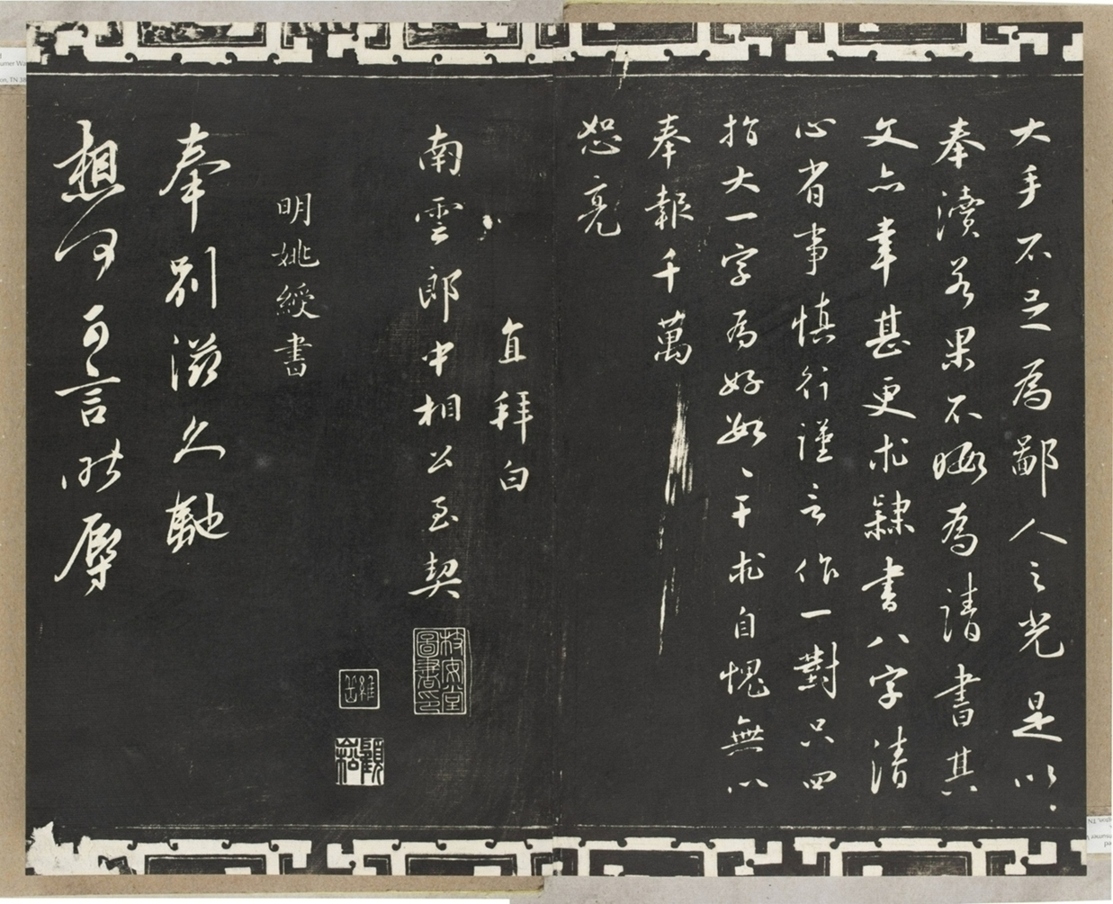 大手不足为鄙人之光是以
奉瀆若果不曉為請書其
文亦幸甚更求隸書八字清
心省事慎行謹言作一對只四
指大一字為好數々干求自愧無以
奉報千萬
恕亮
直拜白
南雲郎中相公至契
枝安堂圖書印
明姚綬書
奉別滋久馳
想何可言昨辱